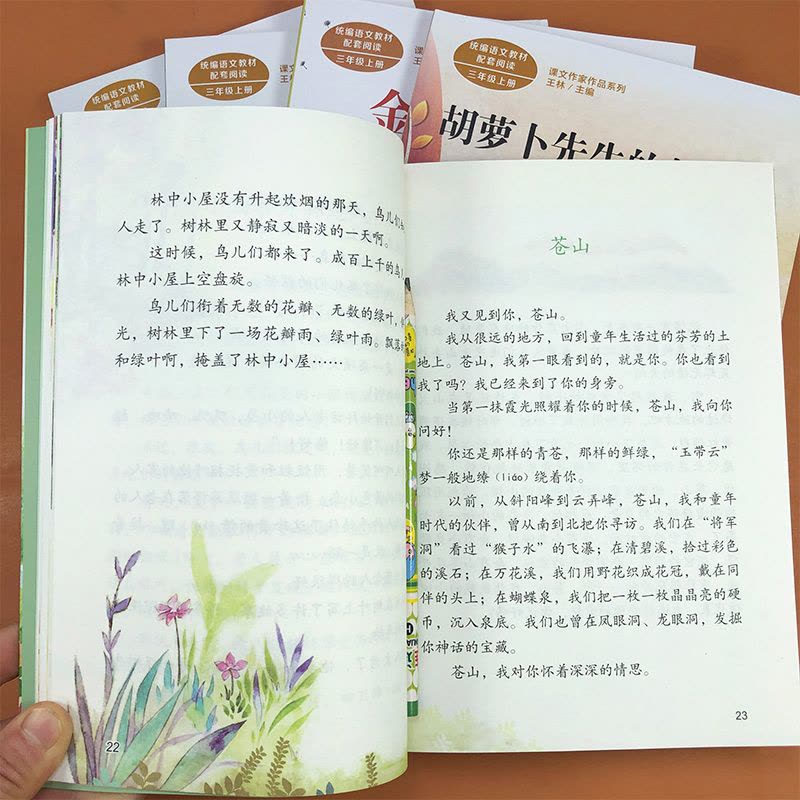 统编语文教材
配套阅读
三年级上册
统编语文教材
配套阅读
三年级上册
课文
王林
统编语文教材
配套阅读
三年级上册
课
王
金
统编语文教材
配套阅读
三年级上册
课文作家作品系列
王林/主编
胡萝卜先生的
林中小屋没有升起炊烟的那天，鸟儿们
人走了。树林里又静寂又暗淡的一天啊。
这时候，鸟儿们都来了。成百上千的鸟
林中小屋上空盘旋。
鸟儿们衔着无数的花瓣、无数的绿叶，
光，树林里下了一场花瓣雨、绿叶雨。飘落
和绿叶啊，掩盖了林中小屋……
22
苍山
我又见到你，苍山。
我从很远的地方，回到童年生活过的芬芳的土
地上。苍山，我第一眼看到的，就是你。你也看到
我了吗？我已经来到了你的身旁。
当第一抹霞光照耀着你的时候，苍山，我向你
问好！
你还是那样的青苍，那样的鲜绿，“玉带云”
梦一般地缭（liáo）绕着你。
以前，从斜阳峰到云弄峰，苍山，我和童年
时代的伙伴，曾从南到北把你寻访。我们在“将军
洞”看过“猴子水”的飞瀑；在清碧溪，拾过彩色
的溪石；在万花溪，我们用野花织成花冠，戴在同
伴的头上；在蝴蝶泉，我们把一枚一枚晶晶亮的硬
币，沉入泉底。我们也曾在凤眼洞、龙眼洞，发掘
你神话的宝藏。
苍山，我对你怀着深深的情思。
23